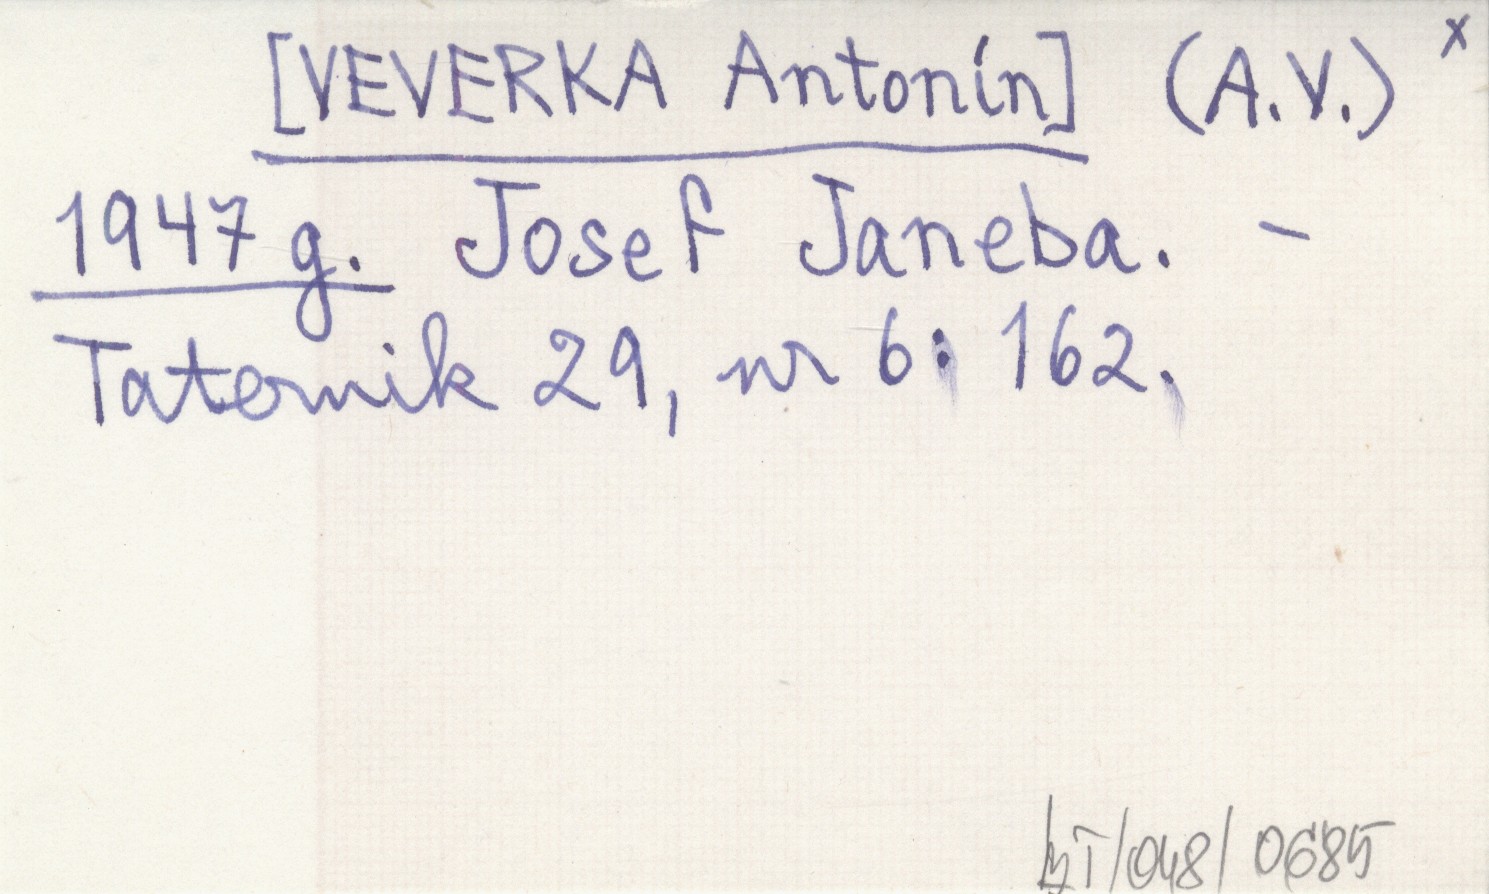 [VEVERKA Antonín] (A.V.) x
1947 g. Josef Janeba. –
Taternik 29, nr 6: 162.
bT/048/0685